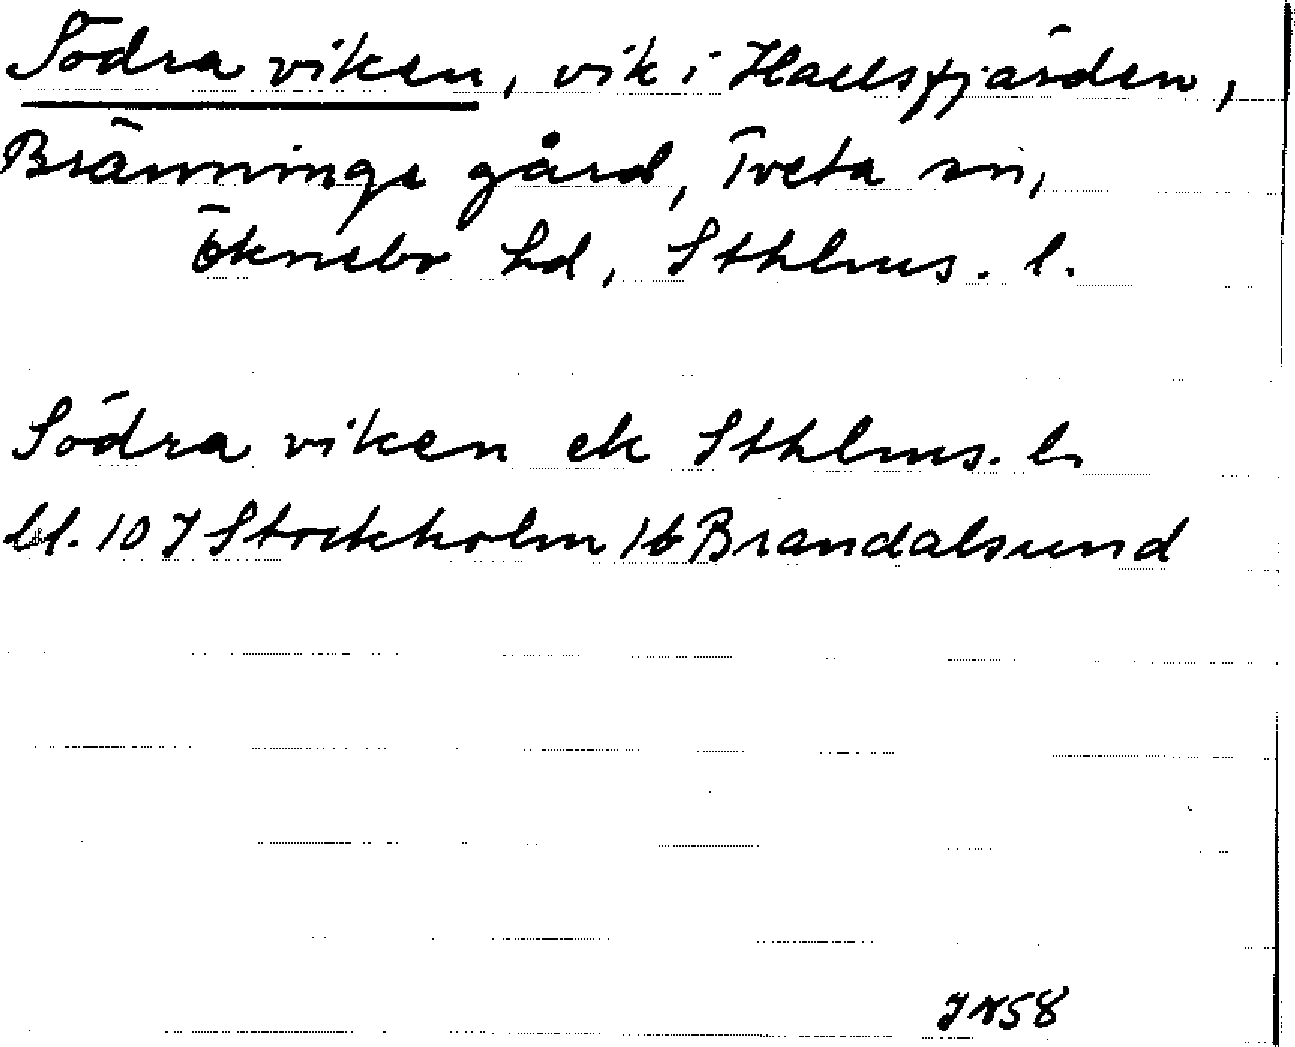 Södra viken, vik i Hallsfjärden,
Bränninge gård, Tveta sn,
Öknebo hd, Sthlms. l.
Södra viken ek Sthlms. l.
bl. 10 I Stockholm 1b Brandalsund